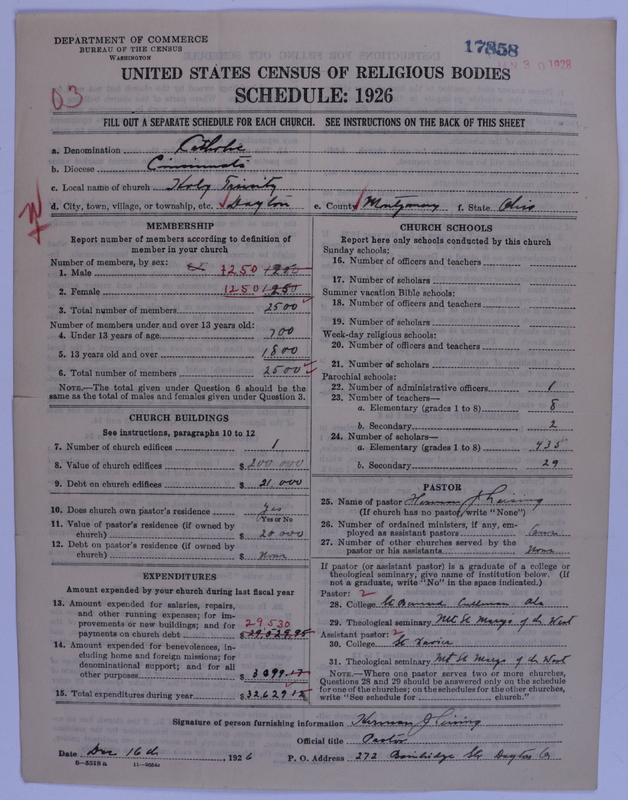 DEPARTMENT OF COMMERCE
BUREAU OF THE CENSUS
WASHINGTON
17858
JAN 30 1928
UNITED STATES CENSUS OF RELIGIOUS BODIES
SCHEDULE: 1926
03
FILL OUT A SEPARATE SCHEDULE FOR EACH CHURCH. SEE INSTRUCTIONS ON THE BACK OF THIS SHEET
a. Denomination Catholic
b. Diocese Cincinnati
c. Local name of church Holy Trinity
d. City, town, village, or township, etc. Dayton e. County Montgomery f. State Ohio
MEMBERSHIP
Report number of members according to definition of
member in your church
Number of members, by sex:
1. Male 1250 1200
2. Female 1250 1250
3. Total number of members 2500
Number of members under and over 13 years old:
4. Under 13 years of age 700
5. 13 years old and over 1800
6. Total number of members 2500
NOTE.—The total given under Question 6 should be the
same as the total of males and females given under Question 3.
CHURCH BUILDINGS
See instructions, paragraphs 10 to 12
7. Number of church edifices 1
8. Value of church edifices $200 000
9. Debt on church edifices $ 21 000
10. Does church own pastor's residence yes
(Yes or No)
11. Value of pastor's residence (if owned by
church) $ 20 000
12. Debt on pastor's residence (if owned by
church) $ None
EXPENDITURES
Amount expended by your church during last fiscal year
13. Amount expended for salaries, repairs,
and other running expenses; for im-
provements or new buildings; and for
payments on church debt 29,530 $ 29,529.95
14. Amount expended for benevolences, in-
cluding home and foreign missions; for
denominational support; and for all
other purposes $ 3099.17
15. Total expenditures during year $ 32629 12
CHURCH SCHOOLS
Report here only schools conducted by this church
Sunday schools:
16. Number of officers and teachers
17. Number of scholars
Summer vacation Bible schools:
18. Number of officers and teachers
19. Number of scholars
Week-day religious schools:
20. Number of officers and teachers
21. Number of scholars
Parochial schools:
22. Number of administrative officers 1
23. Number of teachers—
a. Elementary (grades 1 to 8) 8
b. Secondary 2
24. Number of scholars—
a. Elementary (grades 1 to 8) 435
b. Secondary 29
PASTOR
25. Name of pastor Herman J Leising
(If church has no pastor, write "None")
26. Number of ordained ministers, if any, em-
ployed as assistant pastors
27. Number of other churches served by the
pastor or his assistants None
If pastor (or assistant pastor) is a graduate of a college or
theological seminary, give name of institution below. (If
not a graduate, write "No" in the space indicated.)
Pastor: 2
28. College St Bernard Cullman Ala
29. Theological seminary Mt St Marys of the West
Assistant pastor: 2
30. College St Xavier
31. Theological seminary Mt St Marys of the West
NOTE.—Where one pastor serves two or more churches,
Questions 28 and 29 should be answered only on the schedule
for one of the churches; on the schedules for the other churches,
write "See schedule for church."
Signature of person furnishing information Herman J Leising
Official title Pastor
Date Dec 16th, 1926 P. O. Address 272 Bainbridge St, Dayton O
8-5518 a